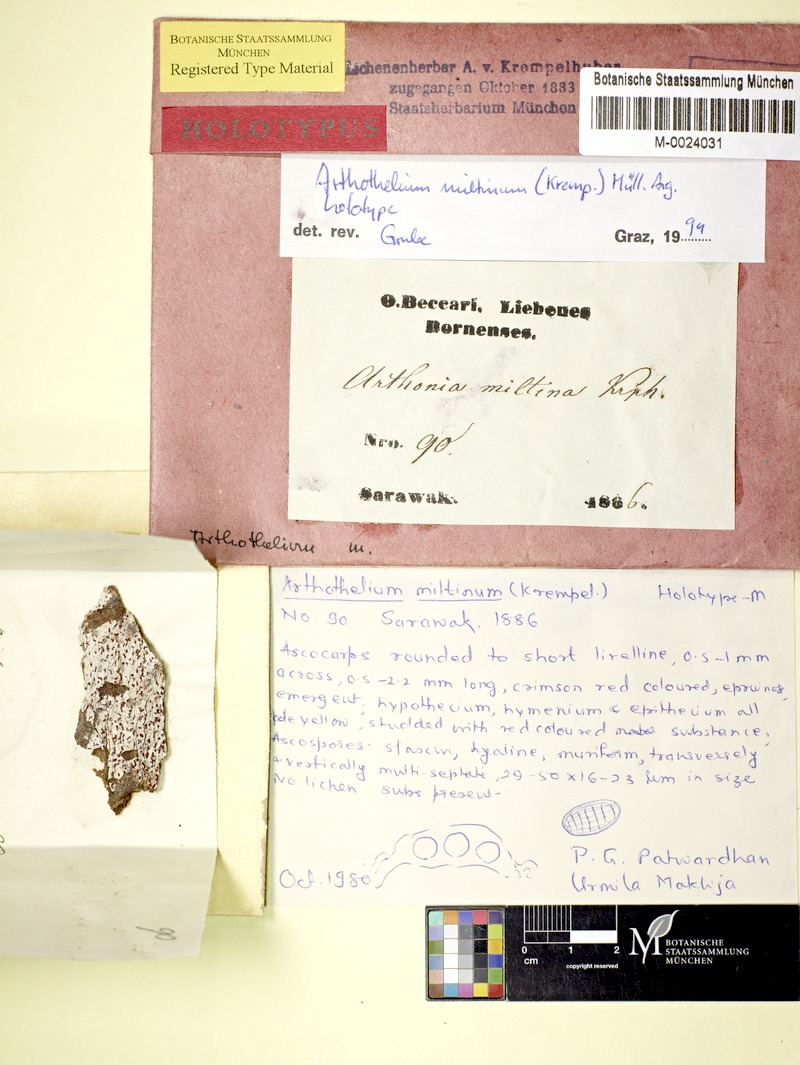 BOTANISCHE STAATSSAMMLUNG
MÜNCHEN
Registered Type Material
Lichenenherbar A. v. Krempelhuber
zugegangen Oktober 1883
Staatsherbarium München
HOLOTYPUS
Botanische Staatssammlung München
M-0024031
Arthothelium miltinum (Kremp.) Müll. Arg.
holotype
det. rev. Grube Graz, 1999
O.Beccari, Lichenes
Bornenses.
Arthonia miltina Krph.
Nro. 90.
Sarawak. 1866.
Arthothelium m.
Arthothelium miltinum (Krempel.) Holotype-M
No. 90 Sarawak. 1886
Ascocarps rounded to short lirelline, 0.5-1 mm
across, 0.5-2.2 mm long, crimson red coloured, epruinose,
emergent; hypothecium, hymenium & epithecium all
pale yellow, studded with red coloured substance;
Ascospores: 8/ascus, hyaline, muriform, transversely
& vertically multi-septate, 29-50 x 16-23 µm in size
No lichen subs present-
Oct. 1980
P. G. Patwardhan
Urmila Makhija
90
0 1 2
cm
copyright reserved
M
BOTANISCHE
STAATSSAMMLUNG
MÜNCHEN